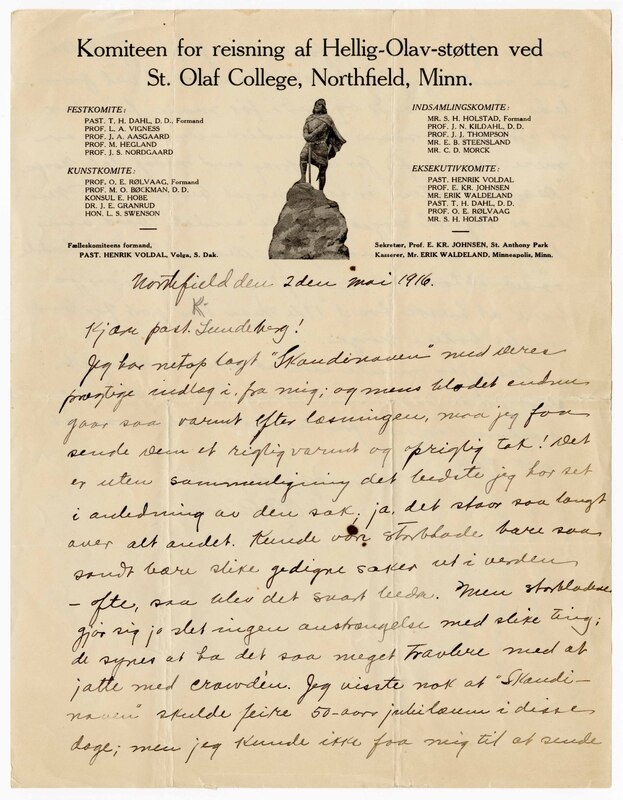 Komiteen for reisning af Hellig-Olav-støtten ved
St. Olaf College, Northfield, Minn.
FESTKOMITE:
PAST. T. H. DAHL, D. D., Formand
PROF. L. A. VIGNESS
PROF. J. A. AASGAARD
PROF. M. HEGLAND
PROF. J. S. NORDGAARD
KUNSTKOMITE:
PROF. O. E. RØLVAAG, Formand
PROF. M. O. BØCKMAN, D. D.
KONSUL E. HOBE
DR. J. E. GRANRUD
HON. L. S. SWENSON
Fælleskomiteens formand,
PAST. HENRIK VOLDAL, Volga, S. Dak.
INDSAMLINGSKOMITE:
MR. S. H. HOLSTAD, Formand
PROF. J. N. KILDAHL, D. D.
PROF. J. J. THOMPSON
MR. E. B. STEENSLAND
MR. C. D. MORCK
EKSEKUTIVKOMITE:
PAST. HENRIK VOLDAL
PROF. E. KR. JOHNSEN
MR. ERIK WALDELAND
PAST. T. H. DAHL, D. D.
PROF. O. E. RØLVAAG
MR. S. H. HOLSTAD
Sekretær, Prof. E. KR. JOHNSEN, St. Anthony Park
Kasserer, Mr. ERIK WALDELAND, Minneapolis, Minn.
Northfield den 2den mai 1916.
K.
Kjære past. Lundeberg!
Jeg har netop lagt "Skandinaven" med deres
prægtige indlæg i, fra mig; og mens blodet endnu
gaar saa varmt efter læsningen, maa jeg faa
sende dem et rigtig varmt og oprigtig tak! Det
er uten sammenligning det bedste jeg har set
i anledning av den sak; ja, det staar saa langt
over alt andet. Kunde vore storblade bare saa
sandt bære slike gedigne saker ut i verden
– ofte, saa blev det snart bedre. Men storbladene
gjør sig jo slet ingen anstrængelse med slike ting;
de synes at ha det saa meget travlere med at
jatte med crowden. Jeg visste nok at "Skandi-
naven" skulde feire 50-aars jubilæum i disse
dage; men jeg kunde ikke faa mig til at sende